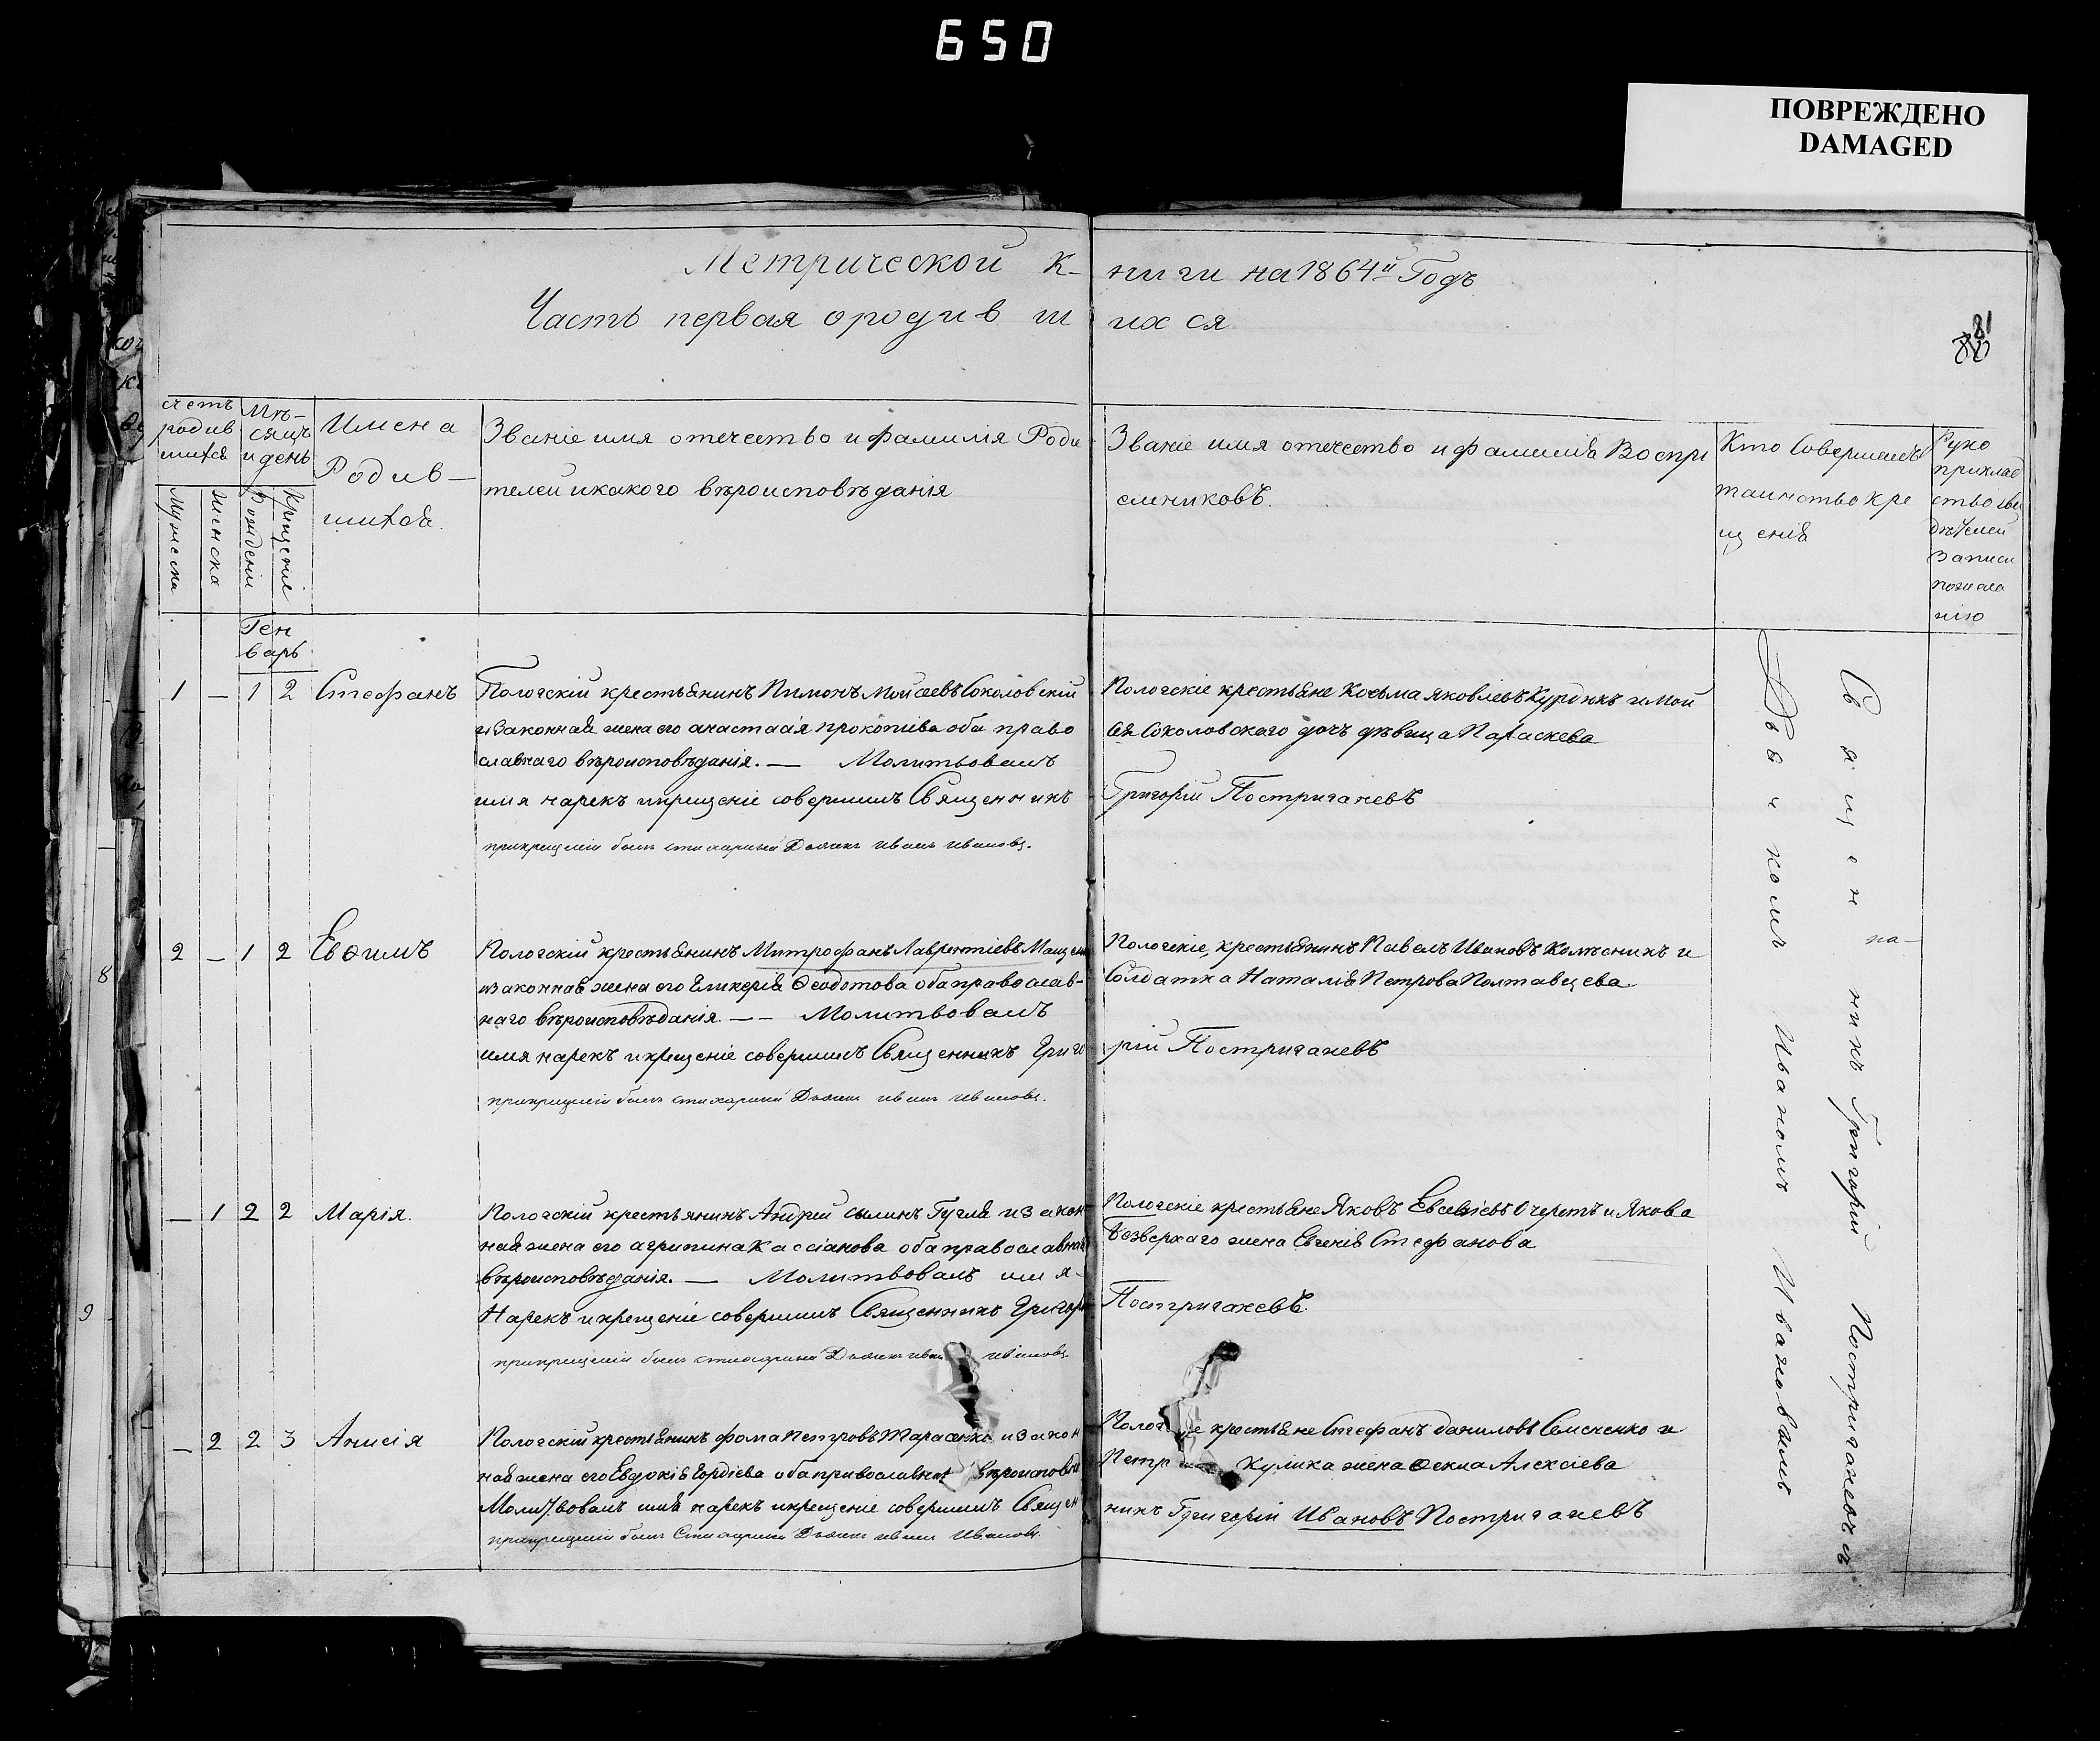 650
ПОВРЕЖДЕНО
DAMAGED
Метрической к-
ниги на 1864й Годъ
Часть первая ородив ш
ихся
81
счетъ родив шихся
Мѣ- сяцъ и день
Имена Родив- шихся.
Званіе имя отечество и фамилія Роди
телей икакого вѣроисповѣданія
Званіе имя отечество и фамилія Воспри
емниковъ.
Кто Совершалъ
таинство кре
щенія
Руко
приклад
ство сви
дѣтелей
Записи
пожела
нію
Мужеска
Женска
Рожденія
Крещеніе
Генварь
1 — 1 2 Стефанъ
Пологскій крестьянинъ Пимонъ Мойсеевъ Соколовскій
изаконная жена его анастасія прокопіева оба право
славнаго вѣроисповѣданія. — Молитвовалъ
имя нарекъ икрещеніе совершилъ Священникъ
прикрещеніи былъ стихарный Дьячекъ иванъ ивановъ.
Пологскіе крестьяне Косьма яковлевъ Курдюкъ и Мой
сея Соколовскаго дочь дѣвица Параскева
Григорій Постригачевъ
2 — 1 2 Евѳимъ
Пологскій крестьянинъ Митрофанъ Лаврентіевъ
изаконная жена его Гликерія Ѳеодотова оба православ-
наго вѣроисповѣданія. — — Молитвовалъ
имя нарекъ икрещеніе совершилъ Священникъ Григо
прикрещеніи былъ стихарный Дьячекъ иванъ ивановъ.
Пологскіе, крестьянинъ Павелъ Ивановъ Колѣсникъ и
Солдатка Наталія Петрова Полтавцева.
рій Постригачевъ
— 1 2 2 Марія.
Пологскій крестьянинъ Андрей силинъ Гугля изакон
ная жена его агрипина Кассіанова оба православнаго
вѣроисповѣданія. — Молитвовалъ имя-
Нарекъ икрещеніе совершилъ Священникъ Григорій
прикрещеніи былъ стихарный Дьячекъ иванъ ивановъ
Пологскіе крестьяне Яковъ Евсевіевъ Очеретъ и Якова
Безверхаго жена Евгенія Стефанова
Постригачевъ.
— 2 2 3 Анисія
Пологскій крестьянинъ фома Петровъ Тарасенко изакон
ная жена его Евдокія Гордіева оба православнаго вѣроисповѣд
Молитвовалъ имя нарекъ икрещеніе совершилъ Священ
прикрещеніи былъ Стихарный Дьячекъ иванъ Ивановъ.
крестьяне Стефанъ даниловъ Семченко и
Петр Кулика жена Ѳекла Алексіева
никъ Григорій Ивановъ Постригачевъ
Священникъ Григорій Постригачевъ съ
Дьячкомъ Иваномъ Ивановымъ
8
9